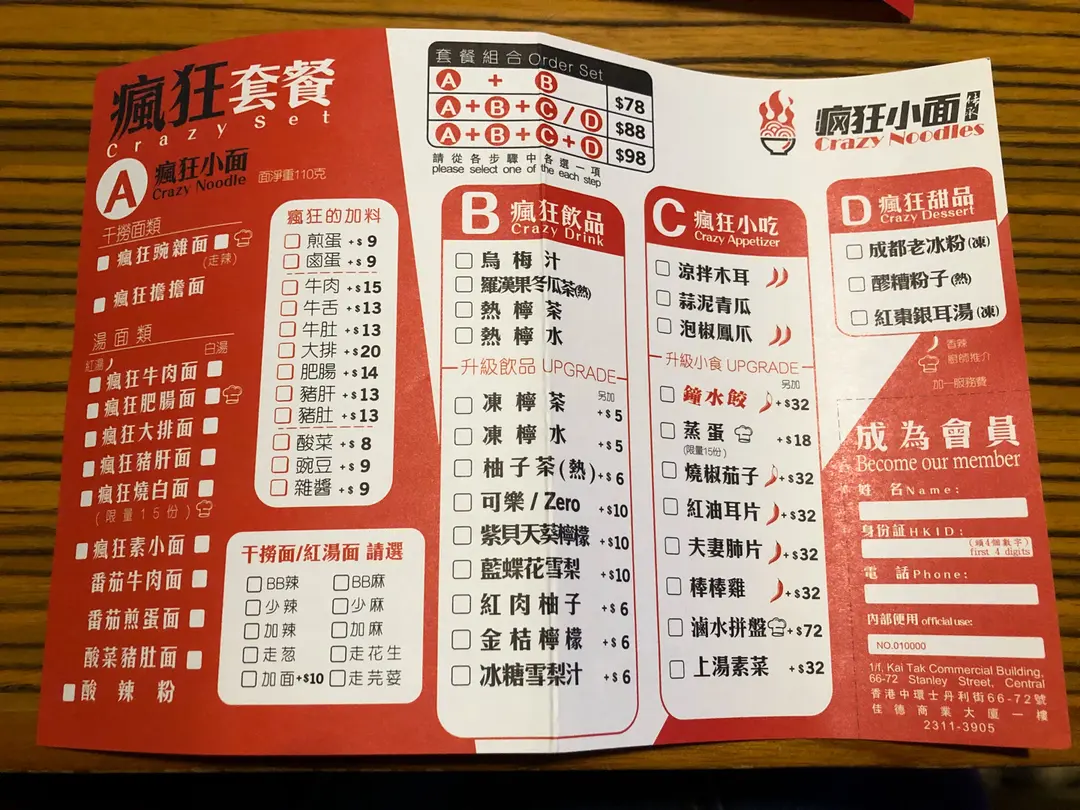 瘋狂套餐
Crazy Set
A 瘋狂小面
Crazy Noodle
面淨重110克
干撈面類
瘋狂豌雜面
(走辣)
瘋狂擔擔面
湯面類
紅湯 白湯
瘋狂牛肉面
瘋狂肥腸面
瘋狂大排面
瘋狂豬肝面
瘋狂燒白面
(限量15份)
瘋狂素小面
番茄牛肉面
番茄煎蛋面
酸菜豬肚面
酸辣粉
瘋狂的加料
煎蛋 +$ 9
鹵蛋 +$ 9
牛肉 +$ 15
牛舌 +$ 13
牛肚 +$ 13
大排 +$ 20
肥腸 +$ 14
豬肝 +$ 13
豬肚 +$ 13
酸菜 +$ 8
豌豆 +$ 9
雜醬 +$ 9
干撈面/紅湯面 請選
BB辣 BB麻
少辣 少麻
加辣 加麻
走葱 走花生
加面+$10 走芫荽
套餐組合 Order Set
A + B $78
A+B+C/D $88
A+B+C+D $98
請從各步驟中各選一項
please select one of the each step
B 瘋狂飲品
Crazy Drink
烏梅汁
羅漢果冬瓜茶(熱)
熱檸茶
熱檸水
升級飲品 UPGRADE
另加
凍檸茶 +$ 5
凍檸水 +$ 5
柚子茶(熱) +$ 6
可樂/Zero +$10
紫貝天葵檸檬 +$10
藍蝶花雪梨 +$10
紅肉柚子 +$ 6
金桔檸檬 +$ 6
冰糖雪梨汁 +$ 6
C 瘋狂小吃
Crazy Appetizer
涼拌木耳
蒜泥青瓜
泡椒鳳爪
升級小食 UPGRADE
另加
鐘水餃 +$32
蒸蛋 +$18
(限量15份)
燒椒茄子 +$32
紅油耳片 +$32
夫妻肺片 +$32
棒棒雞 +$32
滷水拼盤 +$72
上湯素菜 +$32
瘋狂小面
Crazy Noodles
D 瘋狂甜品
Crazy Dessert
成都老冰粉(凍)
醪糟粉子(熱)
紅棗銀耳湯(凍)
香辣
廚師推介
加一服務費
成為會員
Become our member
姓 名Name:
身份証HKID:
(頭4個數字)
first 4 digits
電 話Phone:
內部使用 official use:
NO.010000
1/f, Kai Tak Commercial Building,
66-72 Stanley Street, Central
香港中環士丹利街66-72號
佳德商業大廈一樓
2311-3905